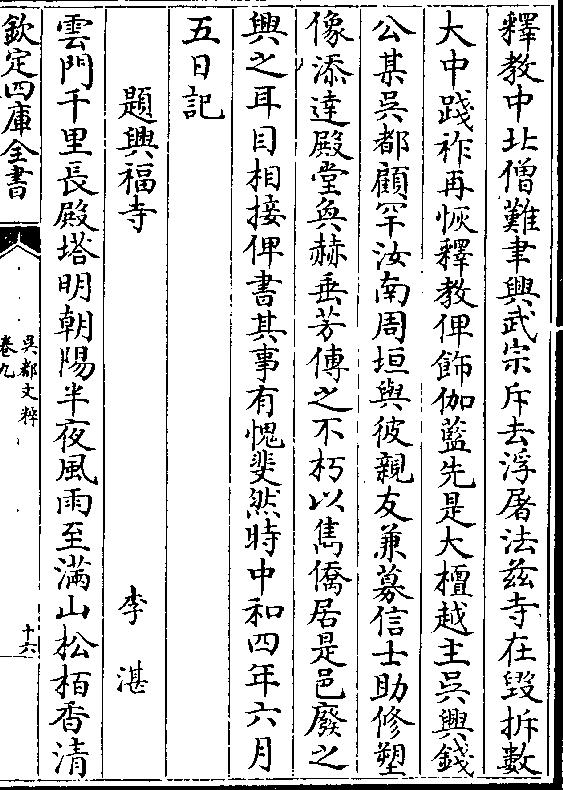 釋教中北僧難聿興武宗斥去浮屠法茲寺在毀拆數
大中踐祚再恢釋教俾飾伽藍先是大檀越主吳興錢
公某吳都顧罕汝南周垣與彼親友兼募信士助修塑
像添達殿堂奐赫垂芳傳之不朽以雋僑居是邑廢之
興之耳目相接俾書其事有愧斐然時中和四年六月
五日記
題興福寺 李湛
雲門千里長殿塔明朝陽半夜風雨至滿山松栢香清
欽定四庫全書
吳都文粹
卷九
十六